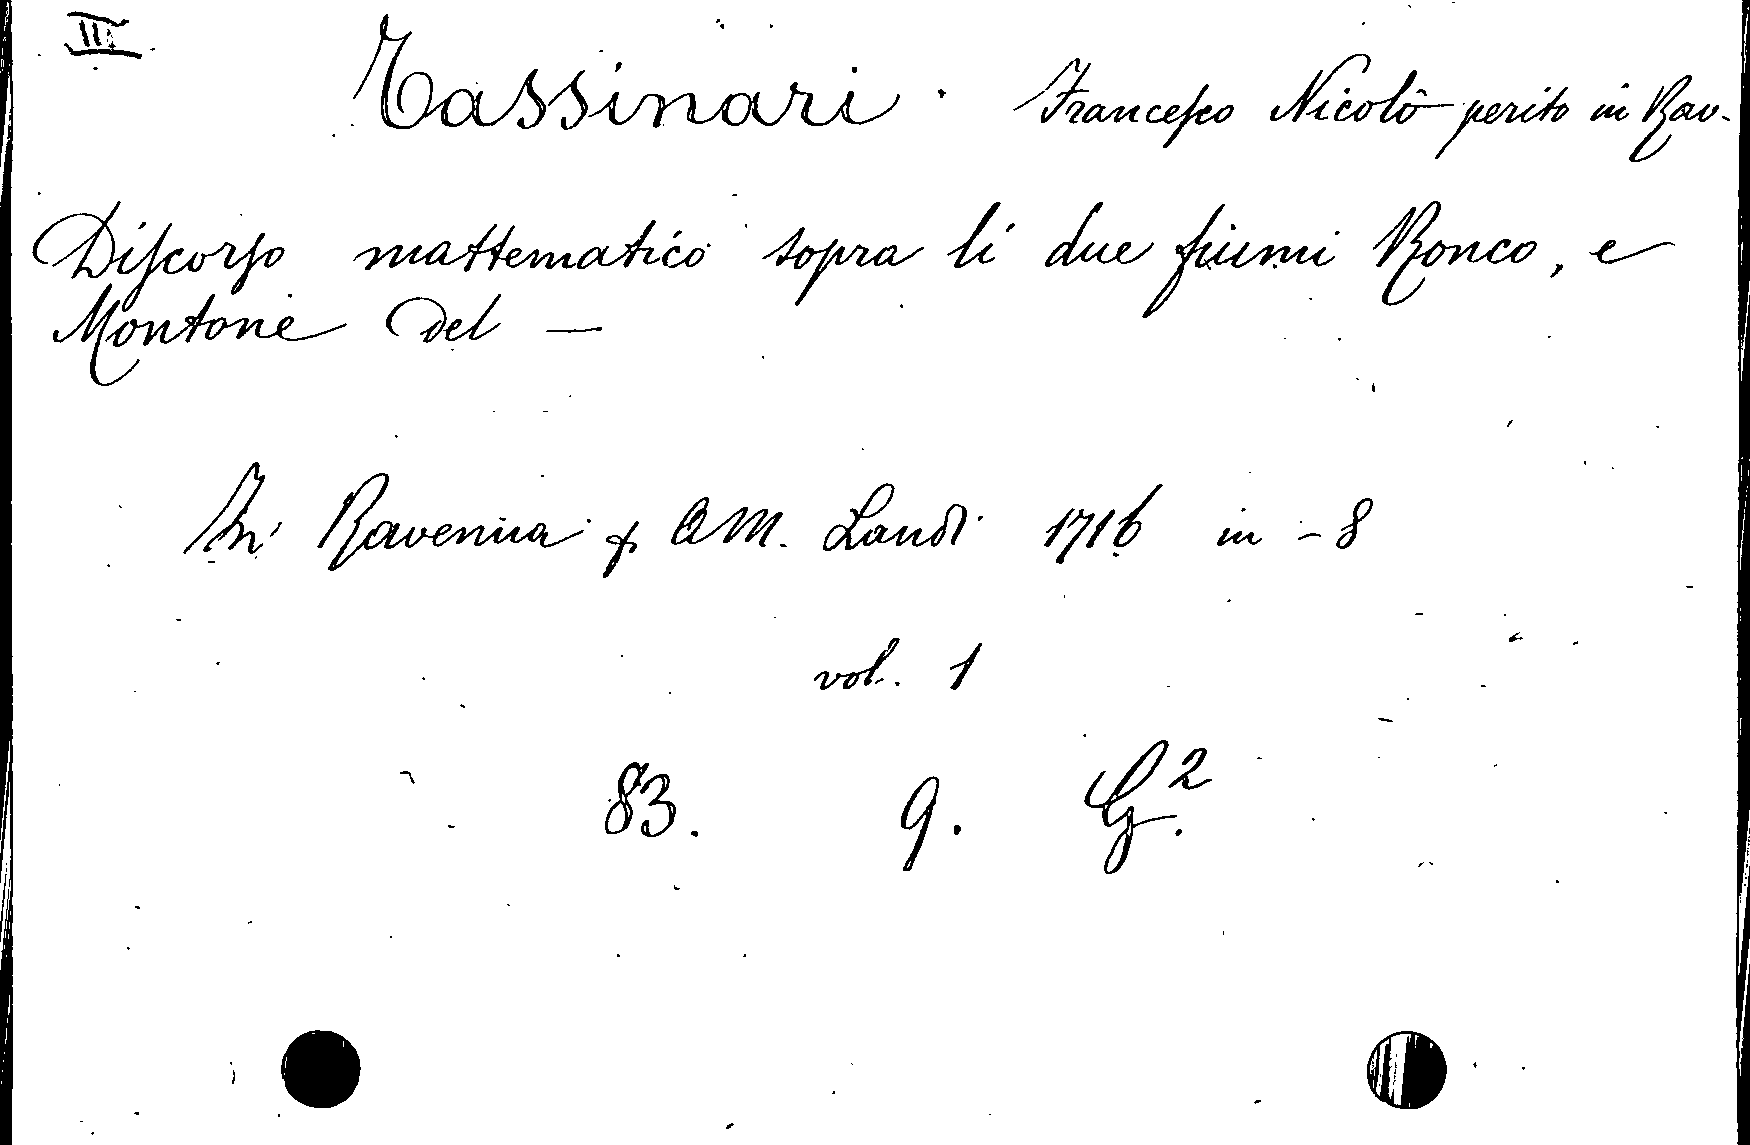 III
Tassinari. Francesco Nicolò perito in Rav.
Discorso mattematico sopra li due fiumi Ronco, e
Montone del —
In Ravenna p. A.M. Landi 1716 in-8
vol. 1
83. 9. G².